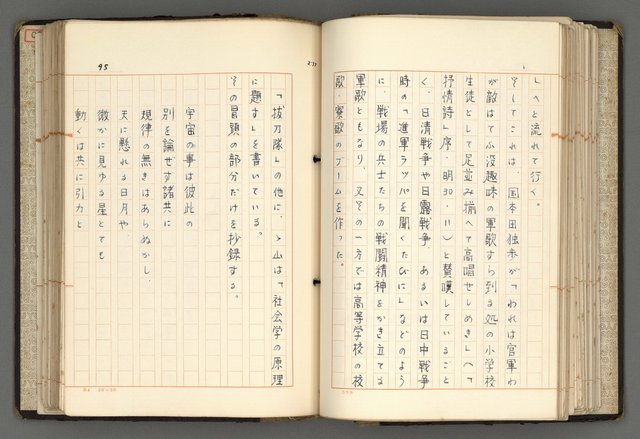 」へと流れて行く。
そしてこれは、国本田独歩が「『われは官軍わ
が敵は』てふ没趣味の軍歌すら到る処の小学校
生徒をして足並み揃へて高唱せしめき」(「
抒情詩」序・明30・11)と賛嘆しているごと
く、日清戦争や日露戦争、あるいは日中戦争
時の「進軍ラッパを聞くたびに」などのよう
に、戦場の兵士たちの戦闘精神をかき立てる
軍歌ともなり、又その一方では高等学校の校
歌・寮歌のブームを作った。
95
「抜刀隊」の他に、ゝ山は「社会学の原理
に題す」を書いている。
その冒頭の部分だけを抄録する。
宇宙の事は彼此の
別を論ぜず諸共に
規律の無きはあらぬかし、
天に懸れる日月や、
微かに見ゆる星とても
動くは共に引力と